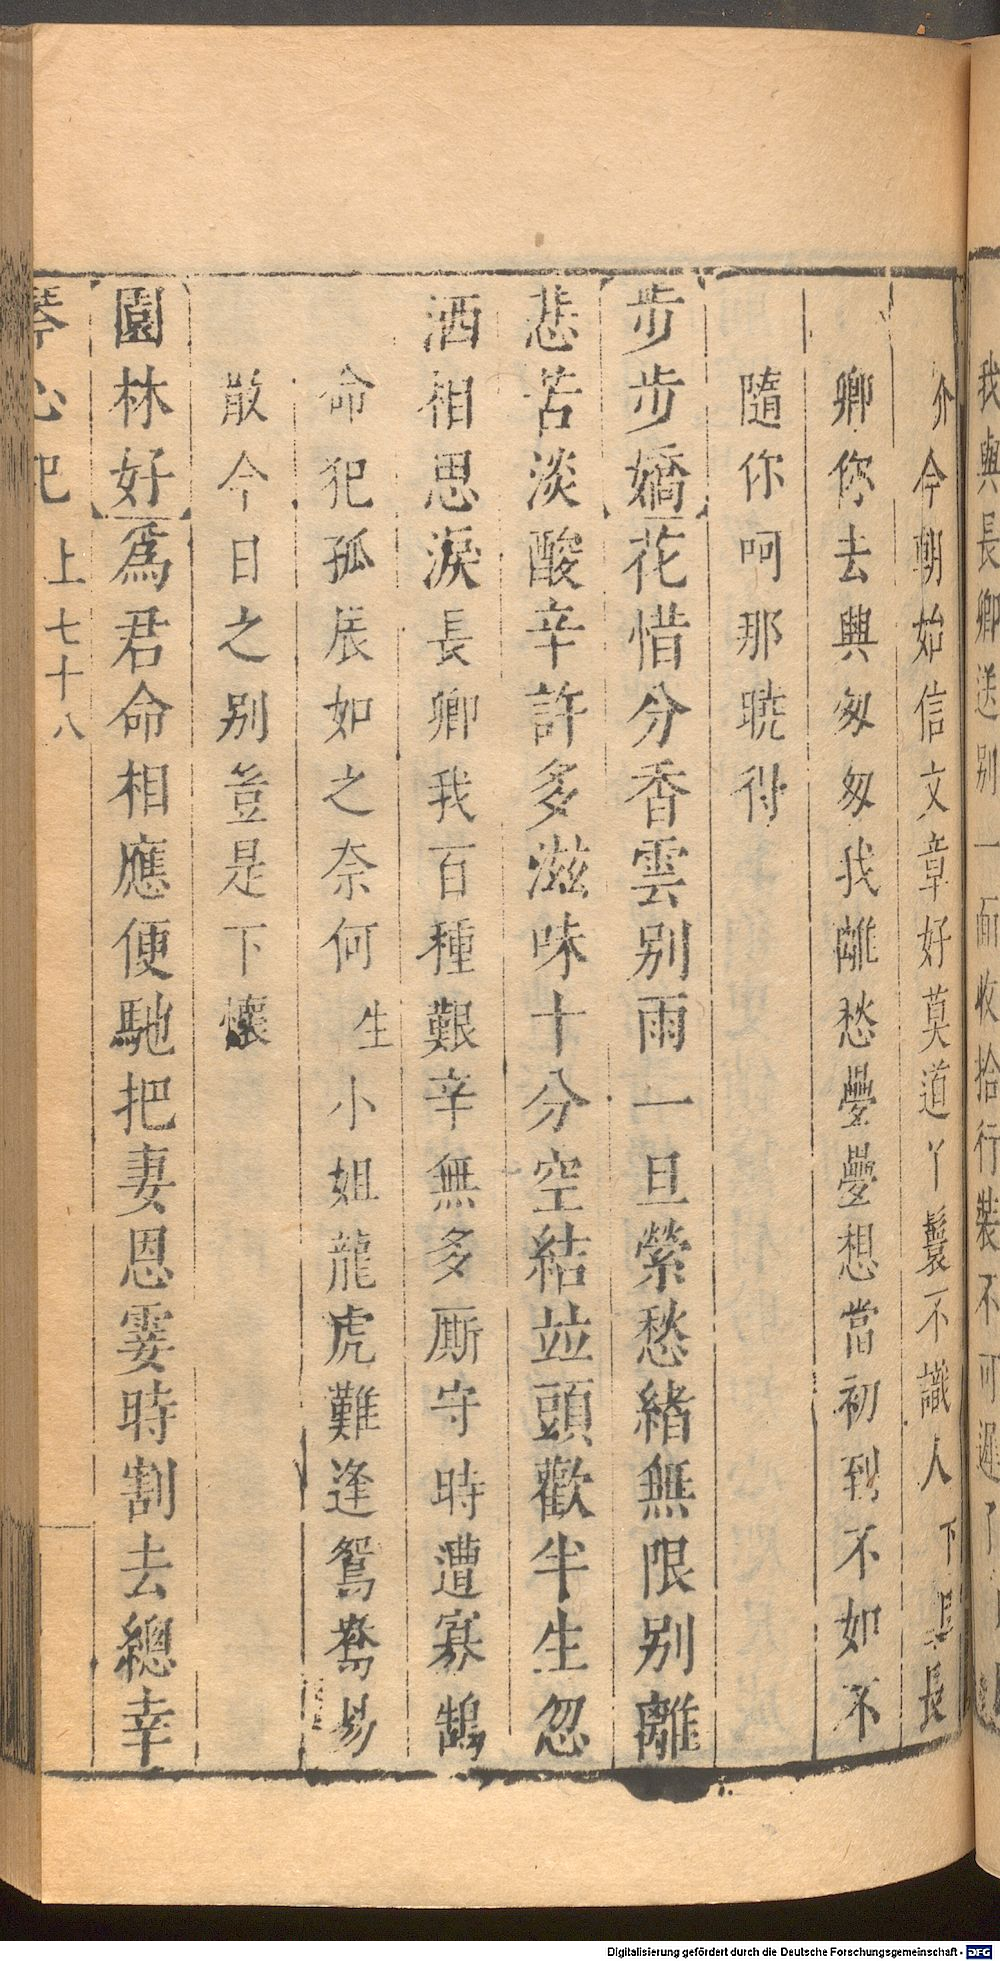 我與長卿送别一面收拾行裝不可遲了
介今朝始信文章好莫道丫鬟不識人下旦長
卿你去與匆匆我離愁疊疊想當初到不如不
隨你呵那曉得
步步嬌花惜分香雲别雨一旦縈愁緖無限别離
悲苦淡酸辛許多滋味十分空結竝頭歡半生忽
洒相思淚長卿我百種艱辛無多厮守時遭寡鵠
命犯孤辰如之奈何生小姐龍虎難逢鴛鴦易
散今日之别豈是下懷
園林好爲君命相應便馳把妻恩霎時割去總幸
琴心記 上七十八
Digitalisierung gefördert durch die Deutsche Forschungsgemeinschaft - DFG